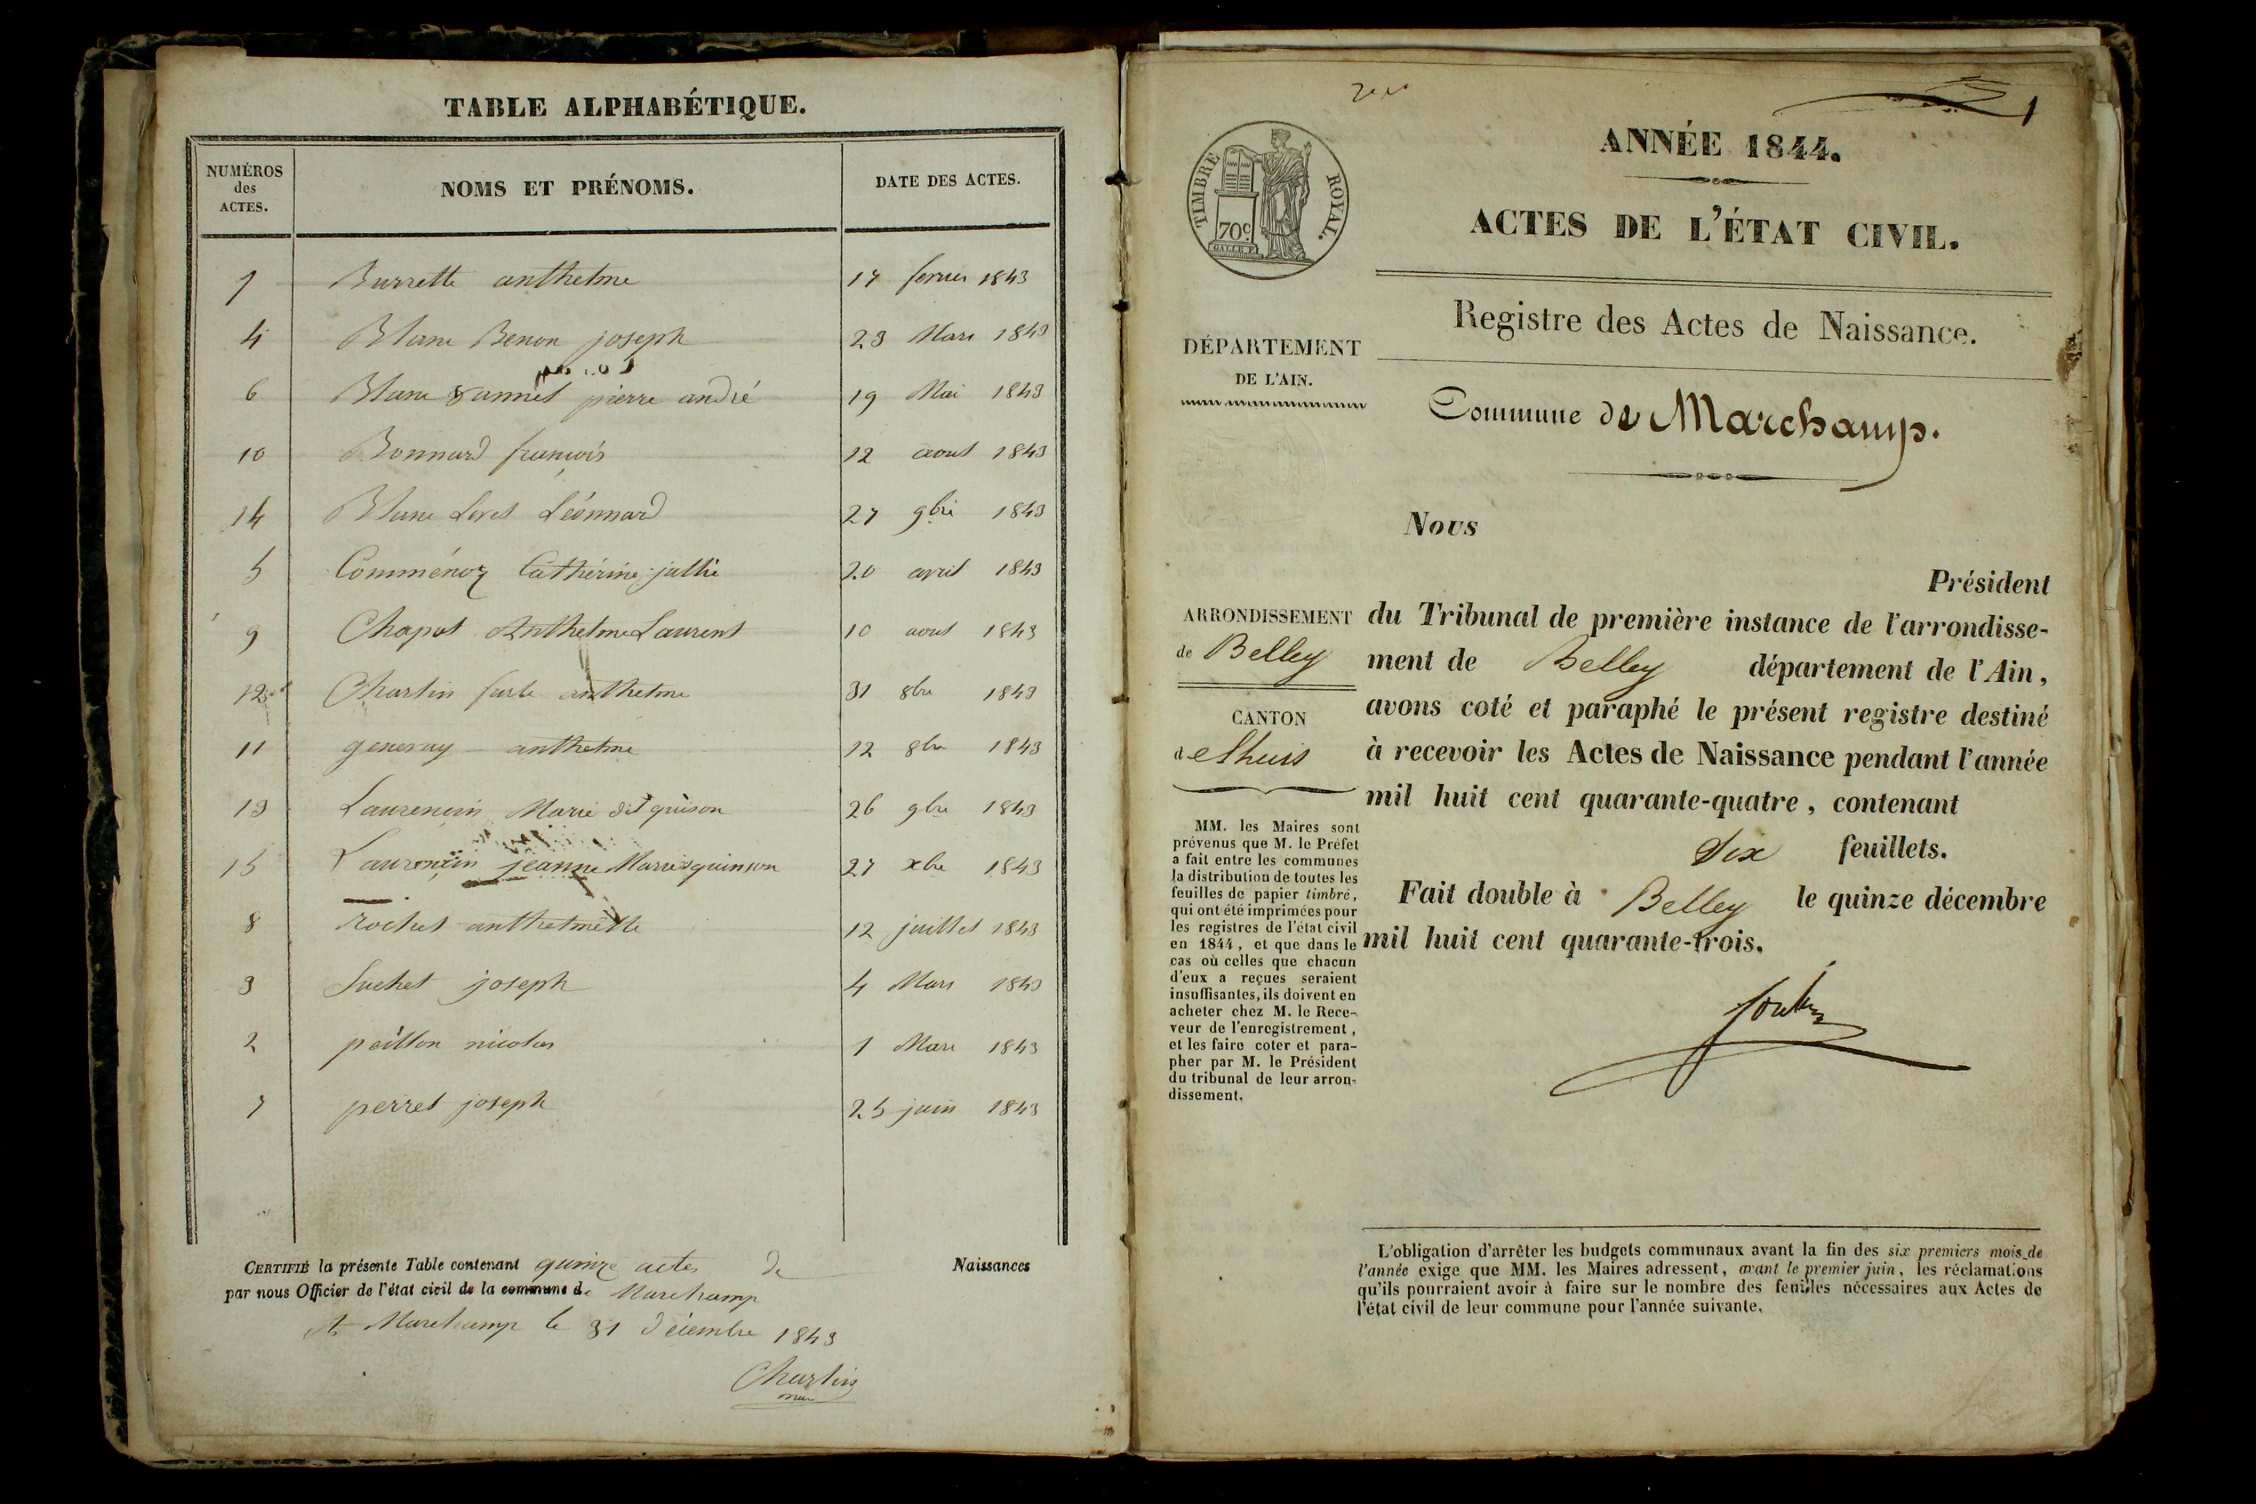 TABLE ALPHABÉTIQUE.
NUMÉROS des ACTES. NOMS ET PRÉNOMS. DATE DES ACTES.
1 Burrette anthelme 17 fevrier 1843
4 Blanc Benon joseph 23 Mars 1843
6 Blanc pierre andré 19 Mai 1843
10 Bonnard françois 12 aout 1843
14 Blanc Léonnard 27 9bre 1843
5 Comménoz Cathérine jullie 20 avril 1843
9 Chapot Anthelme Laurent 10 aout 1843
12 Charlin anthelme 31 8bre 1843
11 genevay anthelme 12 8bre 1843
13 Laurencin Marie dit quison 26 9bre 1843
15 Laurencin jeanne Marie quinson 27 xbre 1843
8 rochet anthelmette 12 juillet 1843
3 Suchet joseph 4 Mars 1843
2 poitton nicolas 1 Mars 1843
7 perret joseph 25 juin 1843
CERTIFIÉ la présente Table contenant quinze actes de Naissances
par nous Officier de l'état civil de la commune de Marchamp
A Marchamp le 31 décembre 1843
Charlin
maire
1
ANNÉE 1844.
TIMBRE ROYAL.
70c
ACTES DE L'ÉTAT CIVIL.
Registre des Actes de Naissance.
DÉPARTEMENT
DE L'AIN.
Commune de Marchamp.
Nous
Président
ARRONDISSEMENT
de Belley
du Tribunal de première instance de l'arrondisse-
ment de Belley département de l'Ain,
avons coté et paraphé le présent registre destiné
CANTON
de Lhuis
à recevoir les Actes de Naissance pendant l'année
mil huit cent quarante-quatre, contenant
Six feuillets.
Fait double à Belley le quinze décembre
mil huit cent quarante-trois.
MM. les Maires sont
prévenus que M. le Préfet
a fait entre les communes
la distribution de toutes les
feuilles de papier timbré,
qui ont été imprimées pour
les registres de l'état civil
en 1844, et que dans le
cas où celles que chacun
d'eux a reçues seraient
insuffisantes, ils doivent en
acheter chez M. le Rece-
veur de l'enregistrement,
et les faire coter et para-
pher par M. le Président
du tribunal de leur arron-
dissement.
L'obligation d'arrêter les budgets communaux avant la fin des six premiers mois de
l'année exige que MM. les Maires adressent, avant le premier juin, les réclamations
qu'ils pourraient avoir à faire sur le nombre des feuilles nécessaires aux Actes de
l'état civil de leur commune pour l'année suivante.